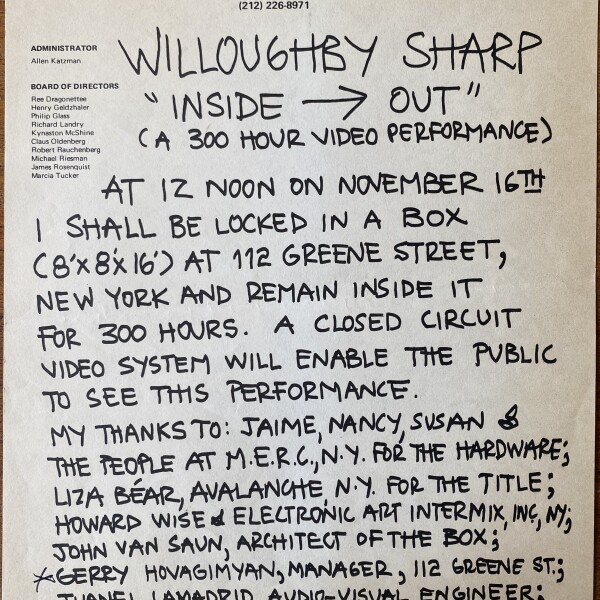 (212) 226-8971
ADMINISTRATOR
Allen Katzman
BOARD OF DIRECTORS
Ree Dragonette
Henry Geldzhaler
Philip Glass
Richard Landry
Kynaston McShine
Claus Oldenberg
Robert Rauchenberg
Michael Riesman
James Rosenquist
Marcia Tucker
WILLOUGHBY SHARP
"INSIDE → OUT"
(A 300 HOUR VIDEO PERFORMANCE)
AT 12 NOON ON NOVEMBER 16TH
I SHALL BE LOCKED IN A BOX
(8'X8'X16') AT 112 GREENE STREET,
NEW YORK AND REMAIN INSIDE IT
FOR 300 HOURS. A CLOSED CIRCUIT
VIDEO SYSTEM WILL ENABLE THE PUBLIC
TO SEE THIS PERFORMANCE.
MY THANKS TO: JAIME, NANCY, SUSAN &
THE PEOPLE AT M.E.R.C., N.Y. FOR THE HARDWARE;
LIZA BÉAR, AVALANCHE, N.Y. FOR THE TITLE;
HOWARD WISE & ELECTRONIC ART INTERMIX, INC, NY;
JOHN VAN SAUN, ARCHITECT OF THE BOX;
*GERRY HOVAGIMYAN, MANAGER, 112 GREENE ST.;
LAMADRID, AUDIO-VISUAL ENGINEER;